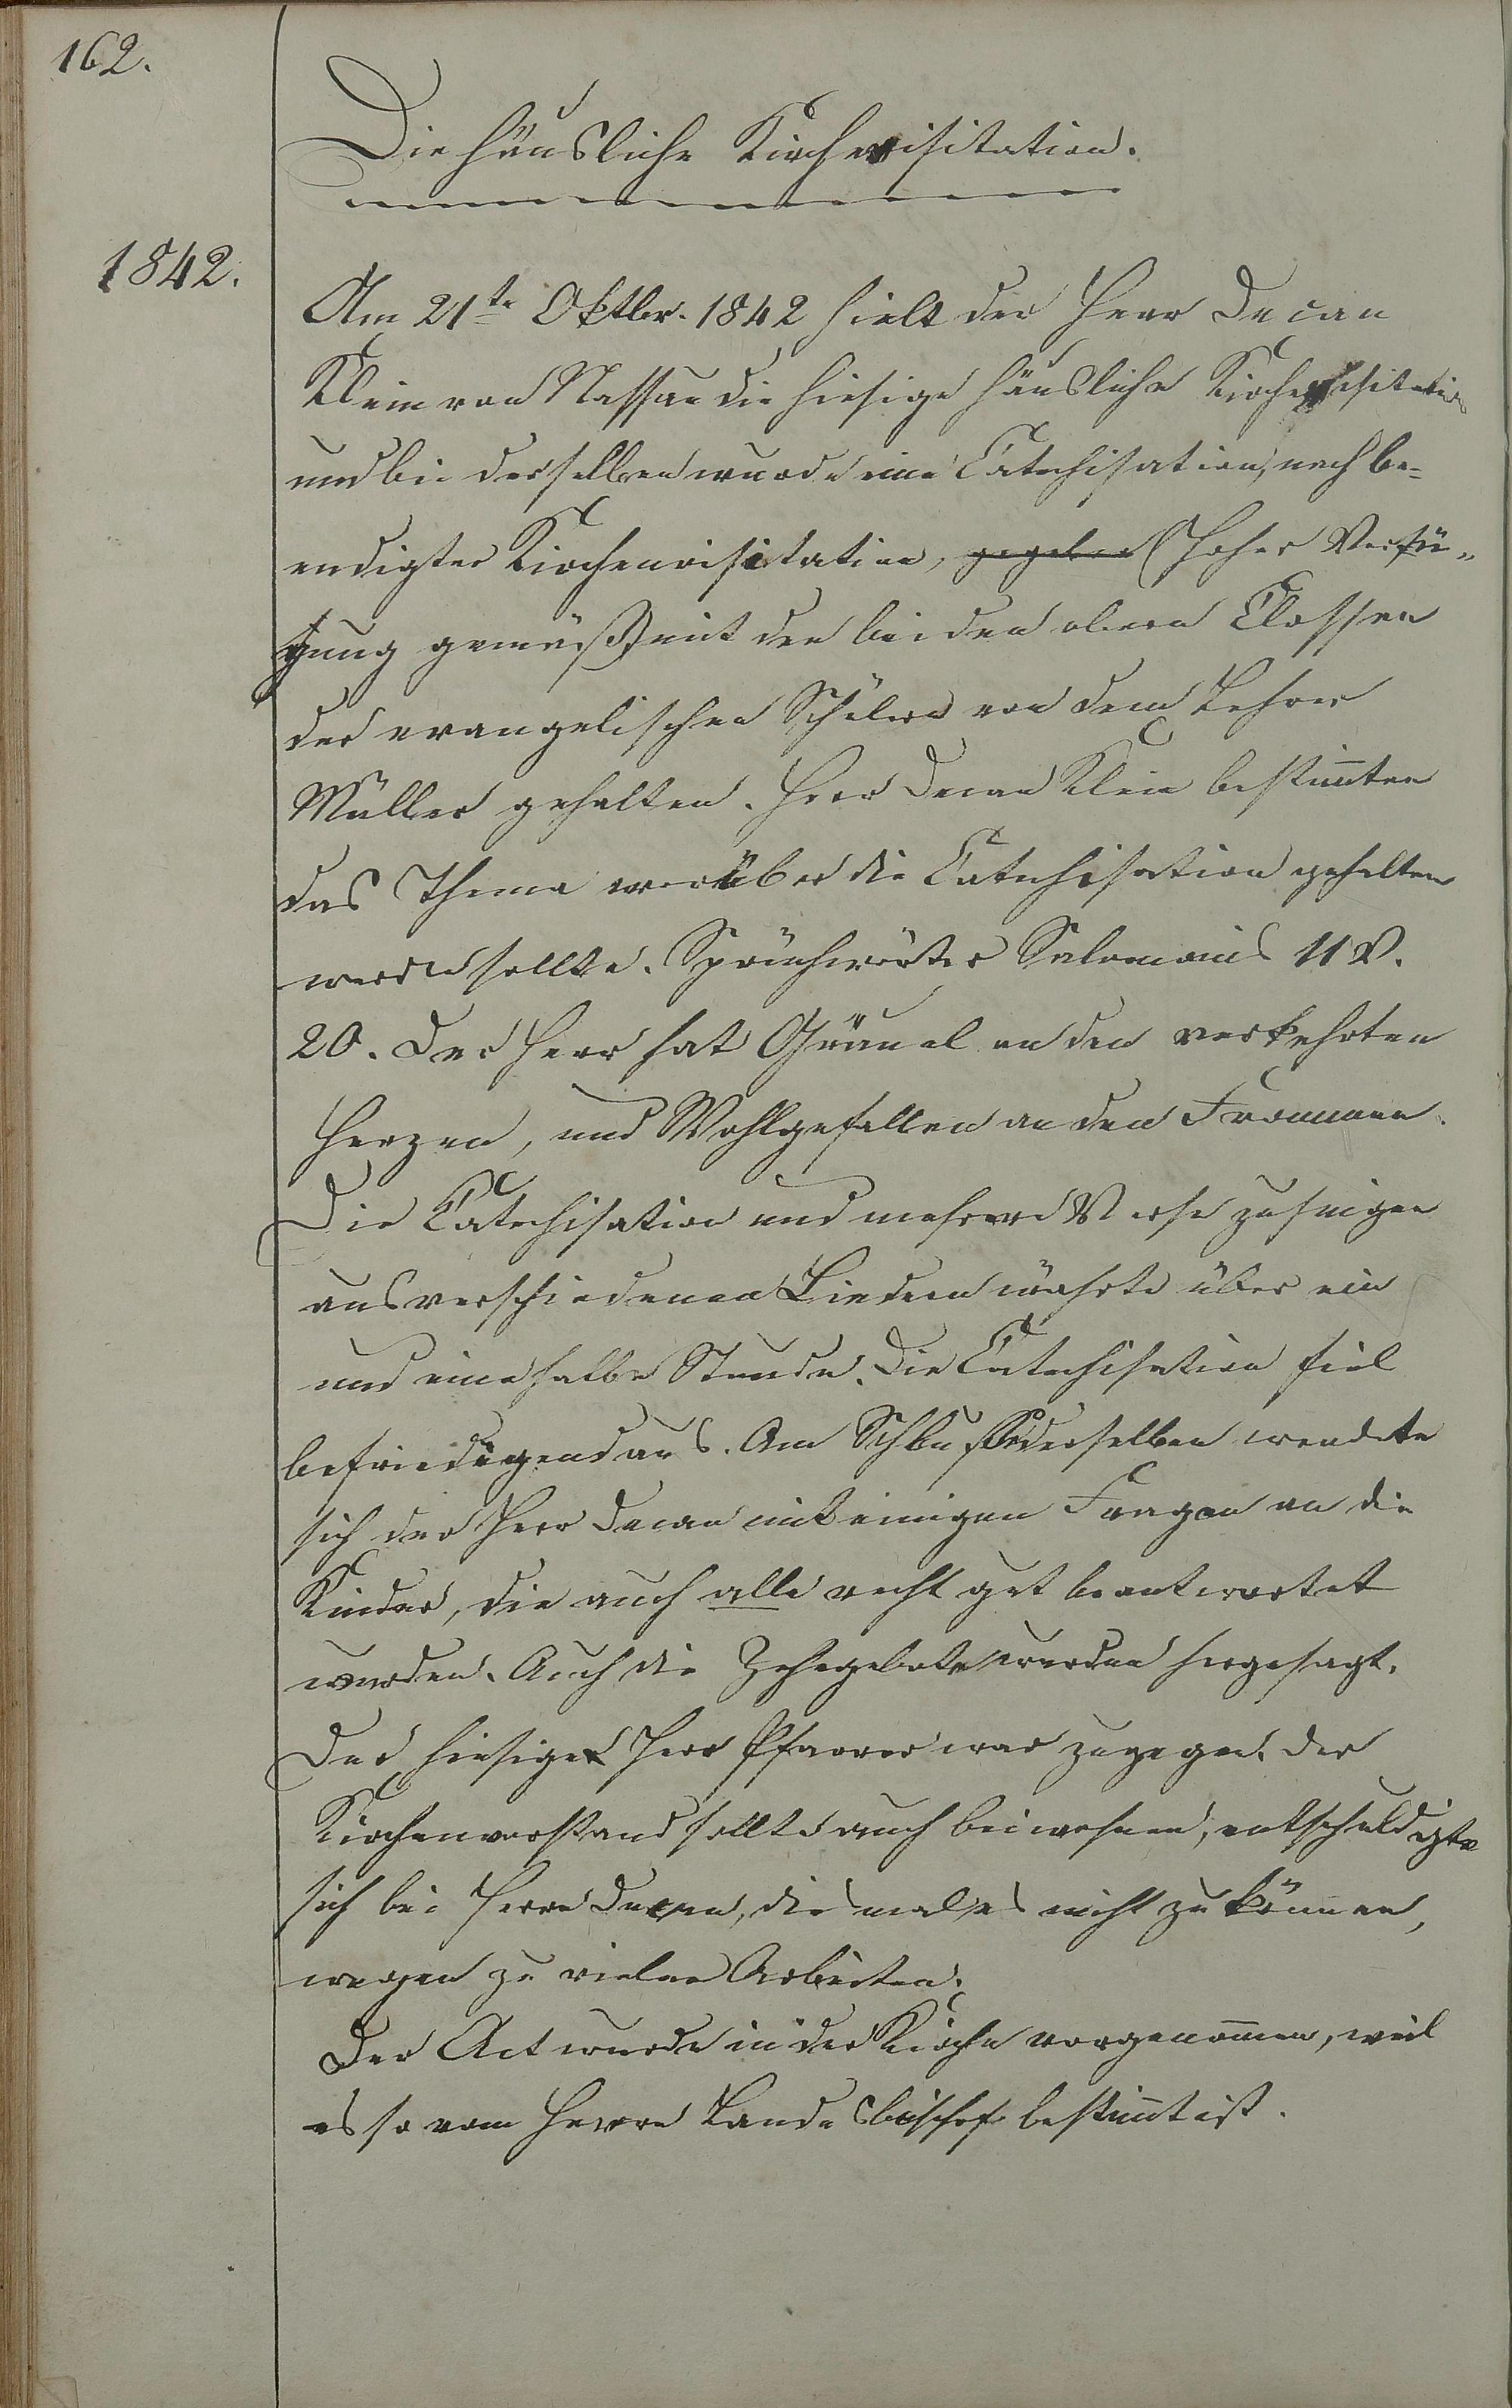 162.
Die häusliche Kirchenvisitation.
1842.
Am 21te Oktbr. 1842 hielt der Herr Decan
Klein von Nassau die hiesige häusliche Kirchenvisitation
und bei derselben wurde eine Catechisation, nach be-
endigter Kirchenvisitation, gegeben (hoher Verfü-
gung gemäß) mit den beiden obern Classen
der evangelischen Schüler von dem Lehrer
Müller gehalten. Herr Decan Klein bestimmten
das Thema worüber die Catechisation gehalten
werden sollte. Sprüchwörter Salomonis 11 V.
20. Der Herr hat Gräuel an den verkehrten
Herzen, und Wohlgefallen an den Frommen.
Die Catechisation und mehrere Verse zu singen
aus verschiedenen Liedern währte über ein
und eine halbe Stunde. Die Catechisation fiel
befriedigend aus. Am Schlusse derselben wendete
sich der Herr Decan mit einigen Fragen an die
Kinder, die auch alle recht gut beantwortet
wurden. Auch die Zehngebote wurden hergesagt.
Der hiesige Herr Pfarrer war zugegen. Der
Kirchenvorstand sollte auch beiwohnen, entschuldigte
sich bei Herrn Decan, diesmal es nicht zu können,
wegen zu vielen Arbeiten.
Der Act wurde in der Kirche vorgenommen, weil
es so vom Herrn Landesbischof bestimmt ist.